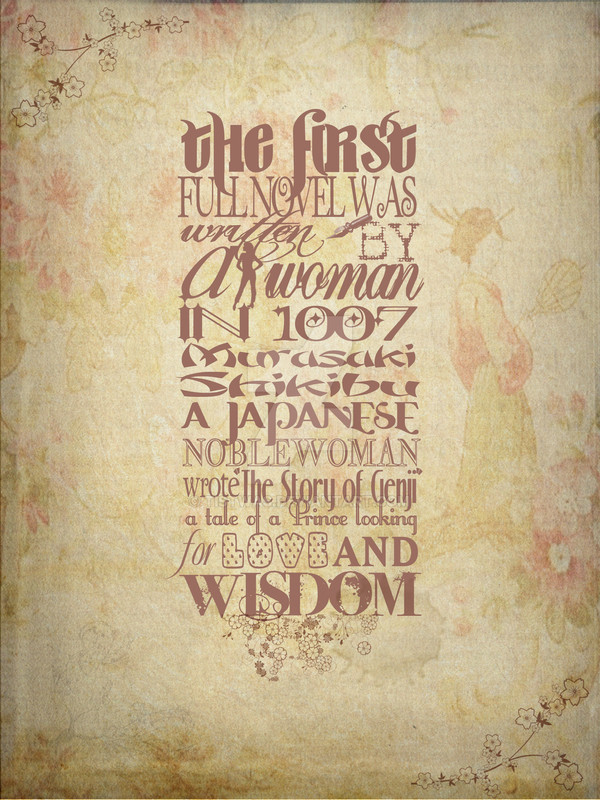 the first
FULL NOVEL WAS
written BY
A woman
IN 1007
Murasaki
Shikibu
A JAPANESE
NOBLEWOMAN
wrote "The Story of Genji"
a tale of a Prince looking
for LOVE AND
WISDOM